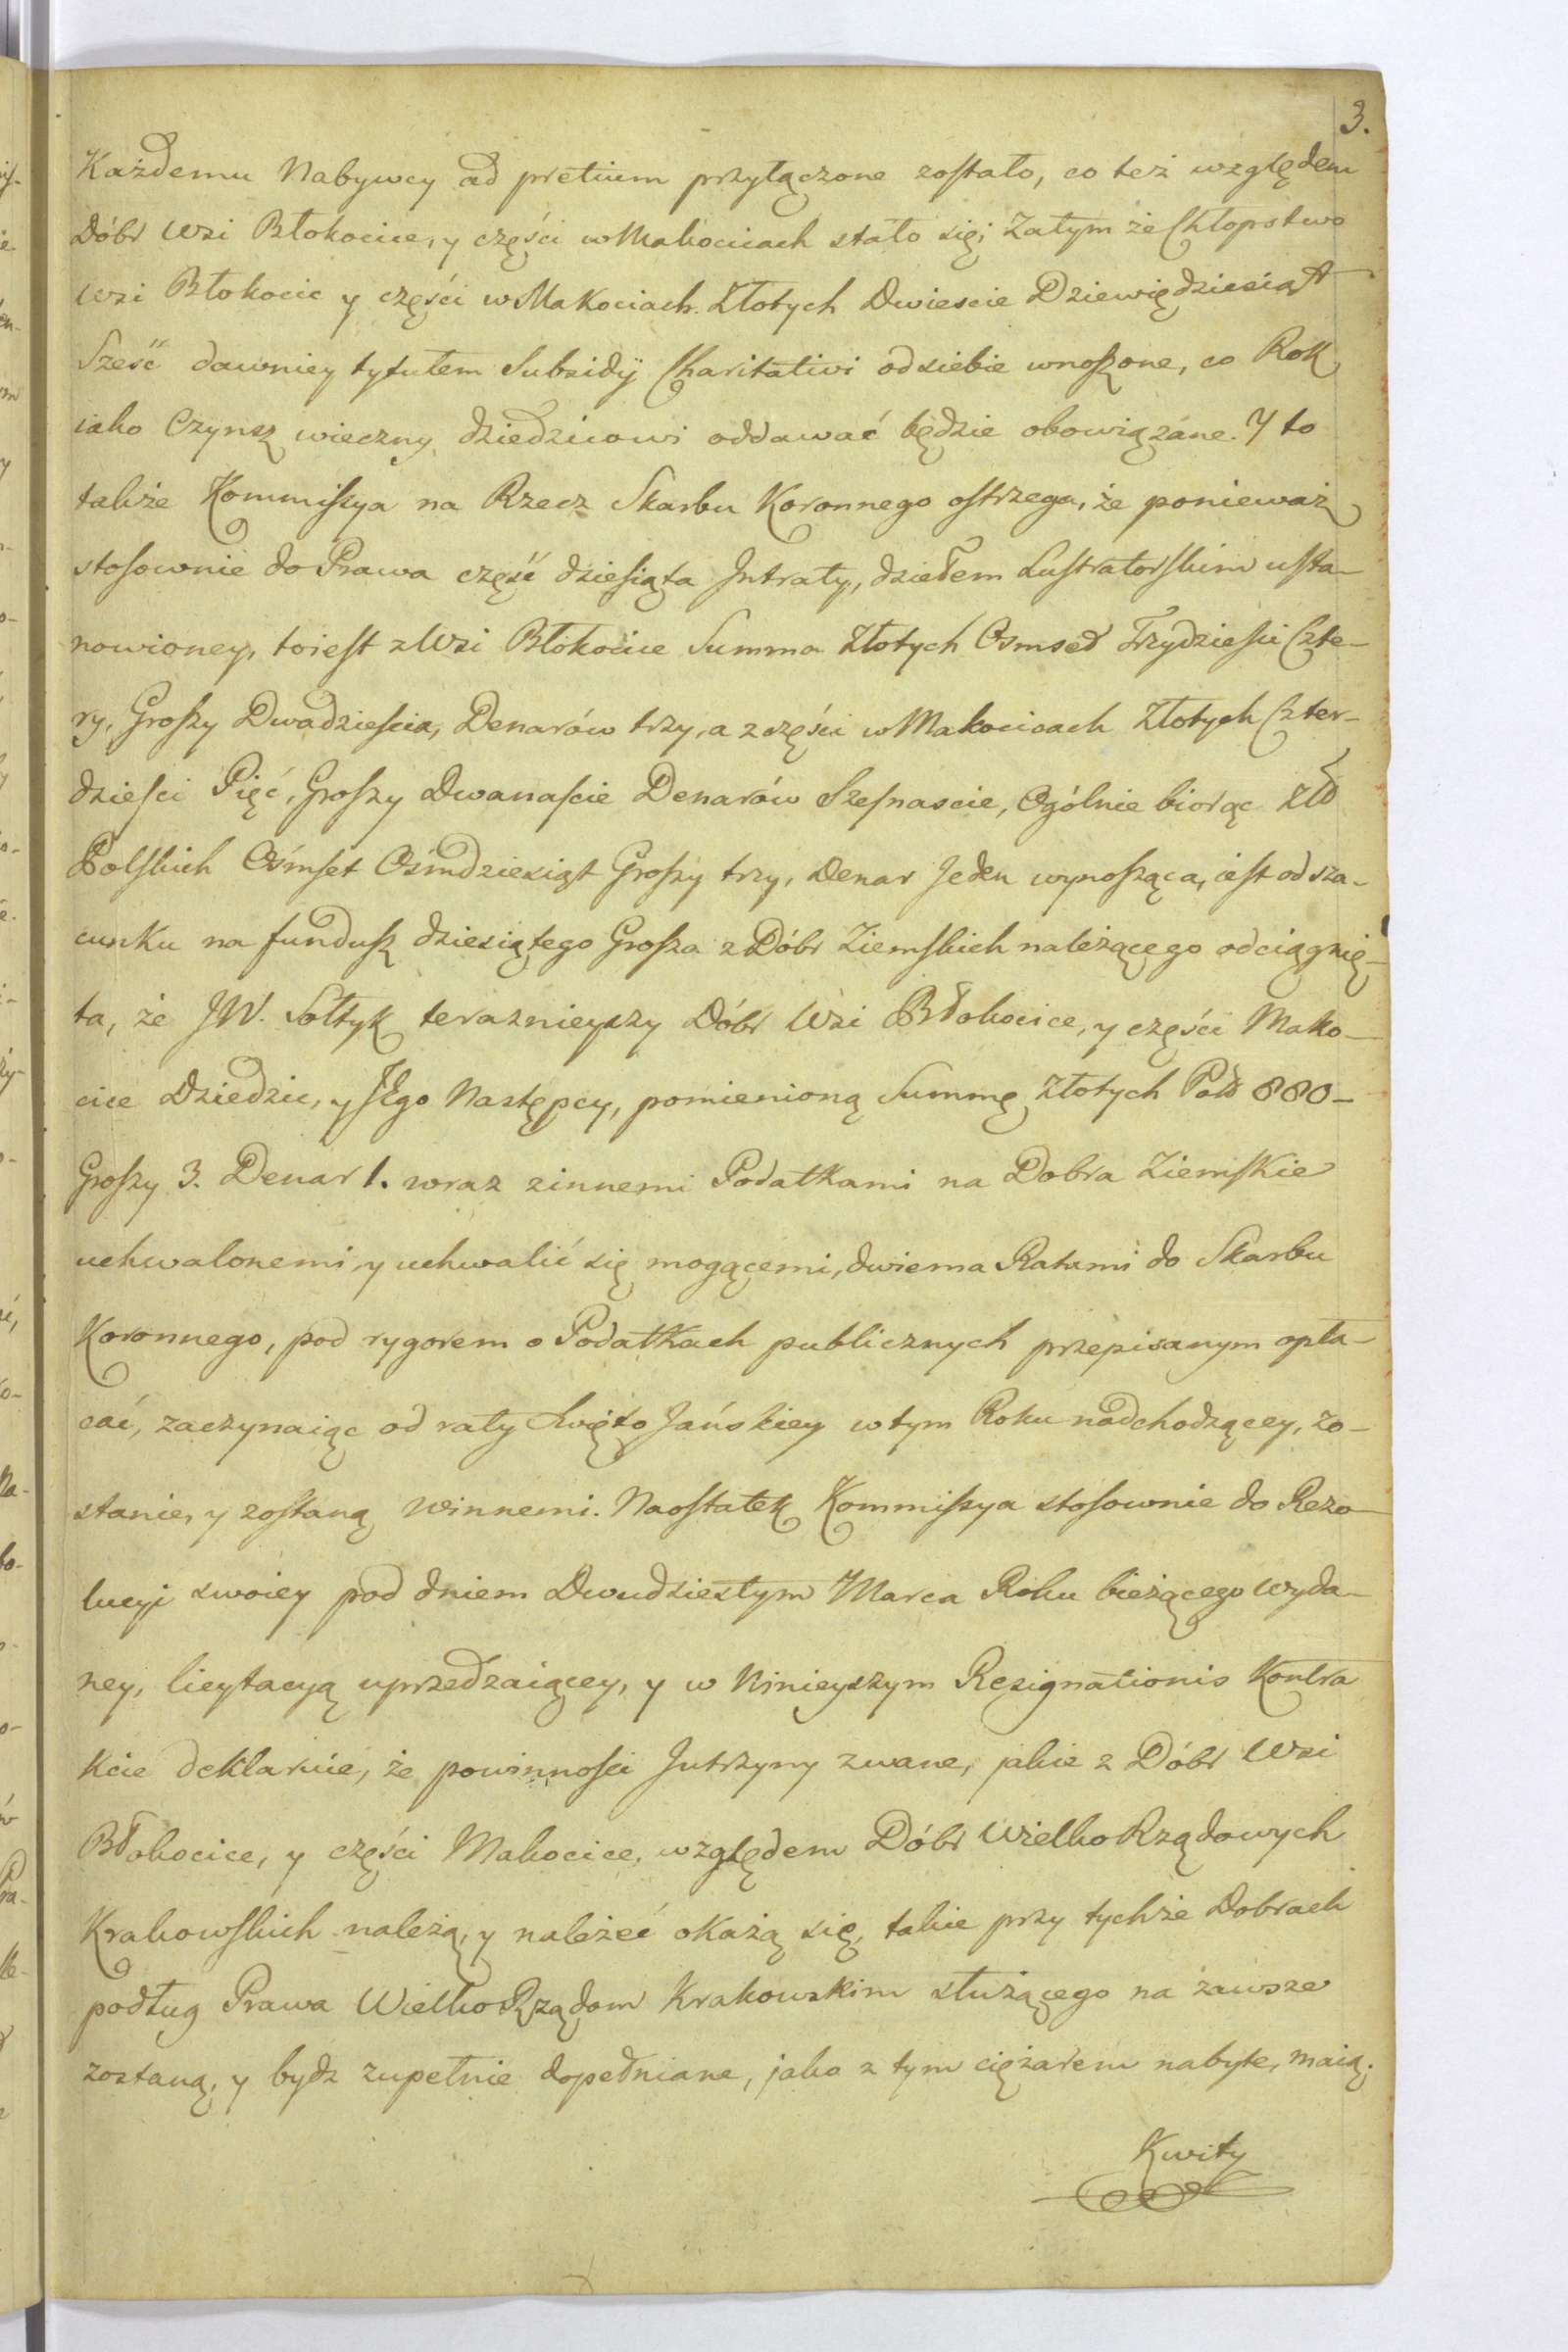 3.
Każdemu Nabywcy ad pretium przyłączone zostało, co też względem
Dóbr Wsi Błokocice, y części w Makocicach stało się; Zatym że Chłopstwo
Wsi Błokocic y części w Makociach. Złotych Dwieście Dziewiędziesiąt
Sześć dawniey tytułem Subsidÿ Charitativi od siebie wnoszone, co Rok
iako Czynsz wieczny, dziedzicowi oddawać będzie obowiązane. Y to
także Kommissya na Rzecz Skarbu Koronnego ostrzega, że ponieważ
stosownie do Prawa część dziesiąta Intraty, dziełem Lustratorskim usta-
nowioney, toiest z Wsi Błokocice Summa Złotych Osmset Trzydzieści Czte-
ry, Groszy Dwadzieścia, Denarów trzy, a z części w Makocicach Złotych Czter-
dzieści Pięć, Groszy Dwanaście Denarów Szesnascie, Ogólnie biorąc Złð
Polskich Ośmset Ośmdziesiąt Groszy trzy, Denar Jeden wynosząca, iest od sza-
cunku na fundusz dziesiątego Grosza z Dóbr Ziemskich należącego odciągnię-
ta, że JW. Sołtyk teraznieyszy Dóbr Wsi Błokocice, y części Mako-
cice Dziedzic, y JEgo Następcy, pomienioną Summę Złotych Pols 880-
Groszy 3. Denar 1. wraz zinnemi Podatkami na Dobra Ziemskie
uchwalonemi, y uchwalić się mogącemi, dwiema Ratami do Skarbu
Koronnego, pod rygorem o Podatkach publicznych przepisanym opła-
cać, zaczynaiąc od raty Święto Jańskiey w tym Roku nadchodzącey, zo-
stanie, y zostaną winnemi. Naostatek Kommissya stosownie do Rezo-
lucyi swoiey pod dniem Dwudziestym Marca Roku bieżącego wyda-
ney, licytacyą uprzedzaiącey, y w Ninieyszym Resignationis Kontra
kcie deklaruie, że powinności Jutrzyny zwane, jakie z Dóbr Wsi
Błokocice, y części Makocice, względem Dóbr WielkoRządowych
Krakowskich należą, y należeć okażą się, takie przy tychże Dobrach
podług Prawa WielkoRządom Krakowskim służącego na zawsze
zostaną, y bydz zupełnie dopełniane, jako z tym ciężarem nabyte, maią.
Kwity